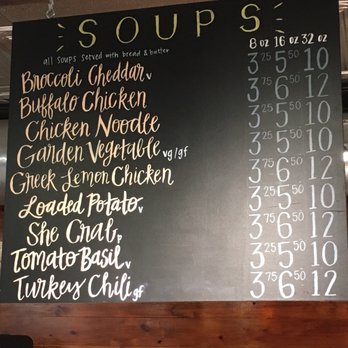 SOUPS
all soups served with bread & butter
8 oz 16 oz 32 oz
Broccoli Cheddar v 3.25 5.50 10
Buffalo Chicken 3.75 6.50 12
Chicken Noodle 3.25 5.50 10
Garden Vegetable vg/gf 3.75 6.50 12
Greek Lemon Chicken 3.75 6.50 12
Loaded Potato v 3.25 5.50 10
She Crab p 3.75 6.50 12
Tomato Basil v 3.25 5.50 10
Turkey Chili gf 3.75 6.50 12